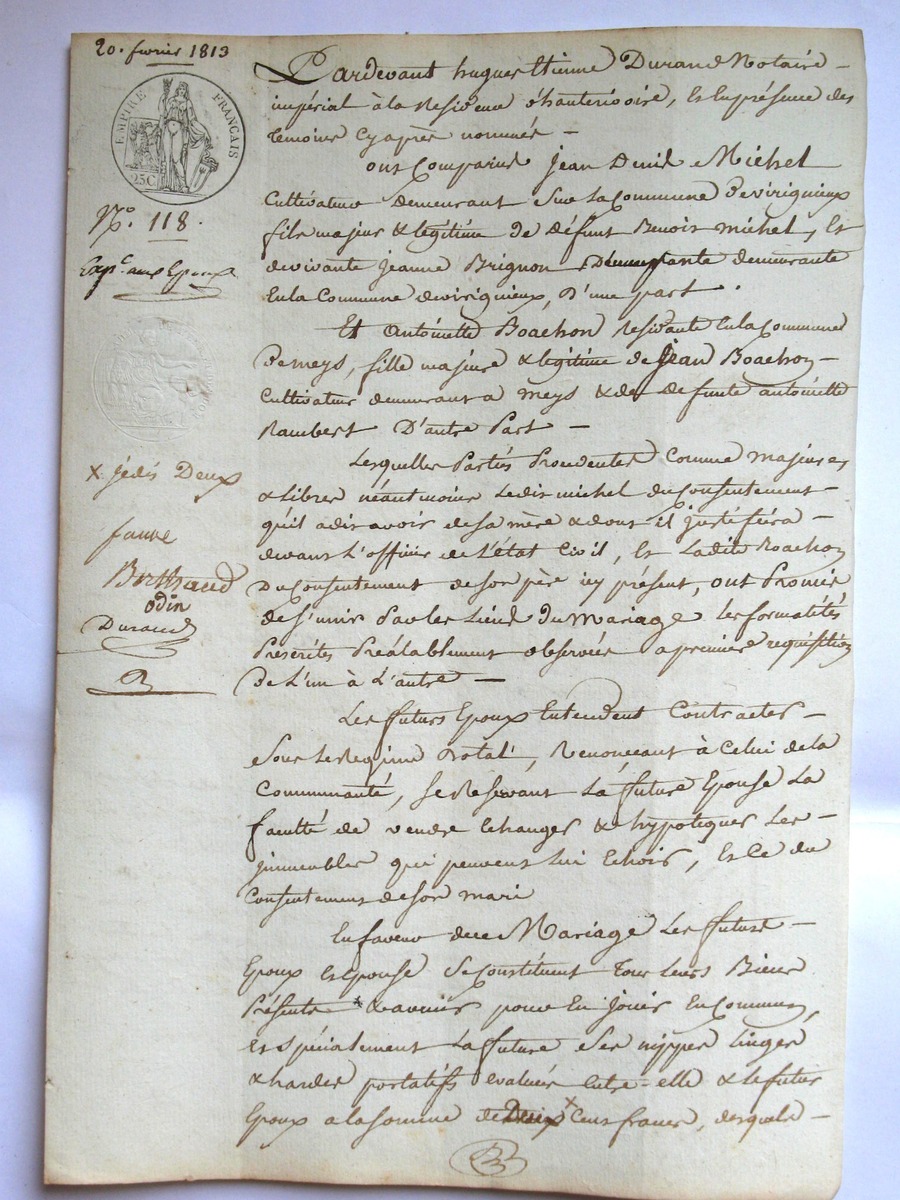 20. fevrier 1813
EMPIRE FRANÇAIS
25C
N.° 118.
Exp.e aux Epoux
Pardevant hugues Etienne Durand Notaire
impérial à la Residence d'hauterivoire, Et En présence des
temoins Cyaprès nommés
ont Comparus Jean Denis Michel
Cultivateur demeurant Sur la Commune De virignieux
fils majeur & légitime de défunt Benoit michel, Et
de vivante Jeanne Brignon demeurante
En la Commune de virignieux, D'une part.
Et Antoinette Boachon Residante En la Commune
De meys, fille majeure & légitime de Jean Boachon
Cultivateur demeurant a meys & de defunte antoinette
Rambert D'autre Part
Lesquelles Parties Procedentes Comme majeures
& Libres néantmoins Ledit michel du Consentement
qu'il a dit avoir de sa mère & dont il justifiera
devant L'officier de L'état Civil, Et Ladite Boachon
Du Consentement de son père icy présent, ont Promis
de S'unir Par les Liens du Mariage Les formalités
Prescrites Préalablement observées a première requisition
De L'un à L'autre
Les futurs Epoux Entendent Contracter
Sous Le Regime dotal, Renonçant à Celui de la
Communauté, Se Reservant La future Epouse La
faculté de vendre Echanger & hypotequer Les
immeubles qui peuvent lui Echoir, Et Ce du
Consentement de son mari
En faveur de ce Mariage Les future
Epoux et Epouse Se Constituent Tous Leurs Biens
Présents & avenir pour En jouir En Commun,
Et spécialement La future Ses nippes linges
& hardes portatifs évalués entre-elle & Le futur
Epoux a la somme de Deux x Cent francs, desquels
x je dis Deux
fauve
Berthaud
odin
Durand